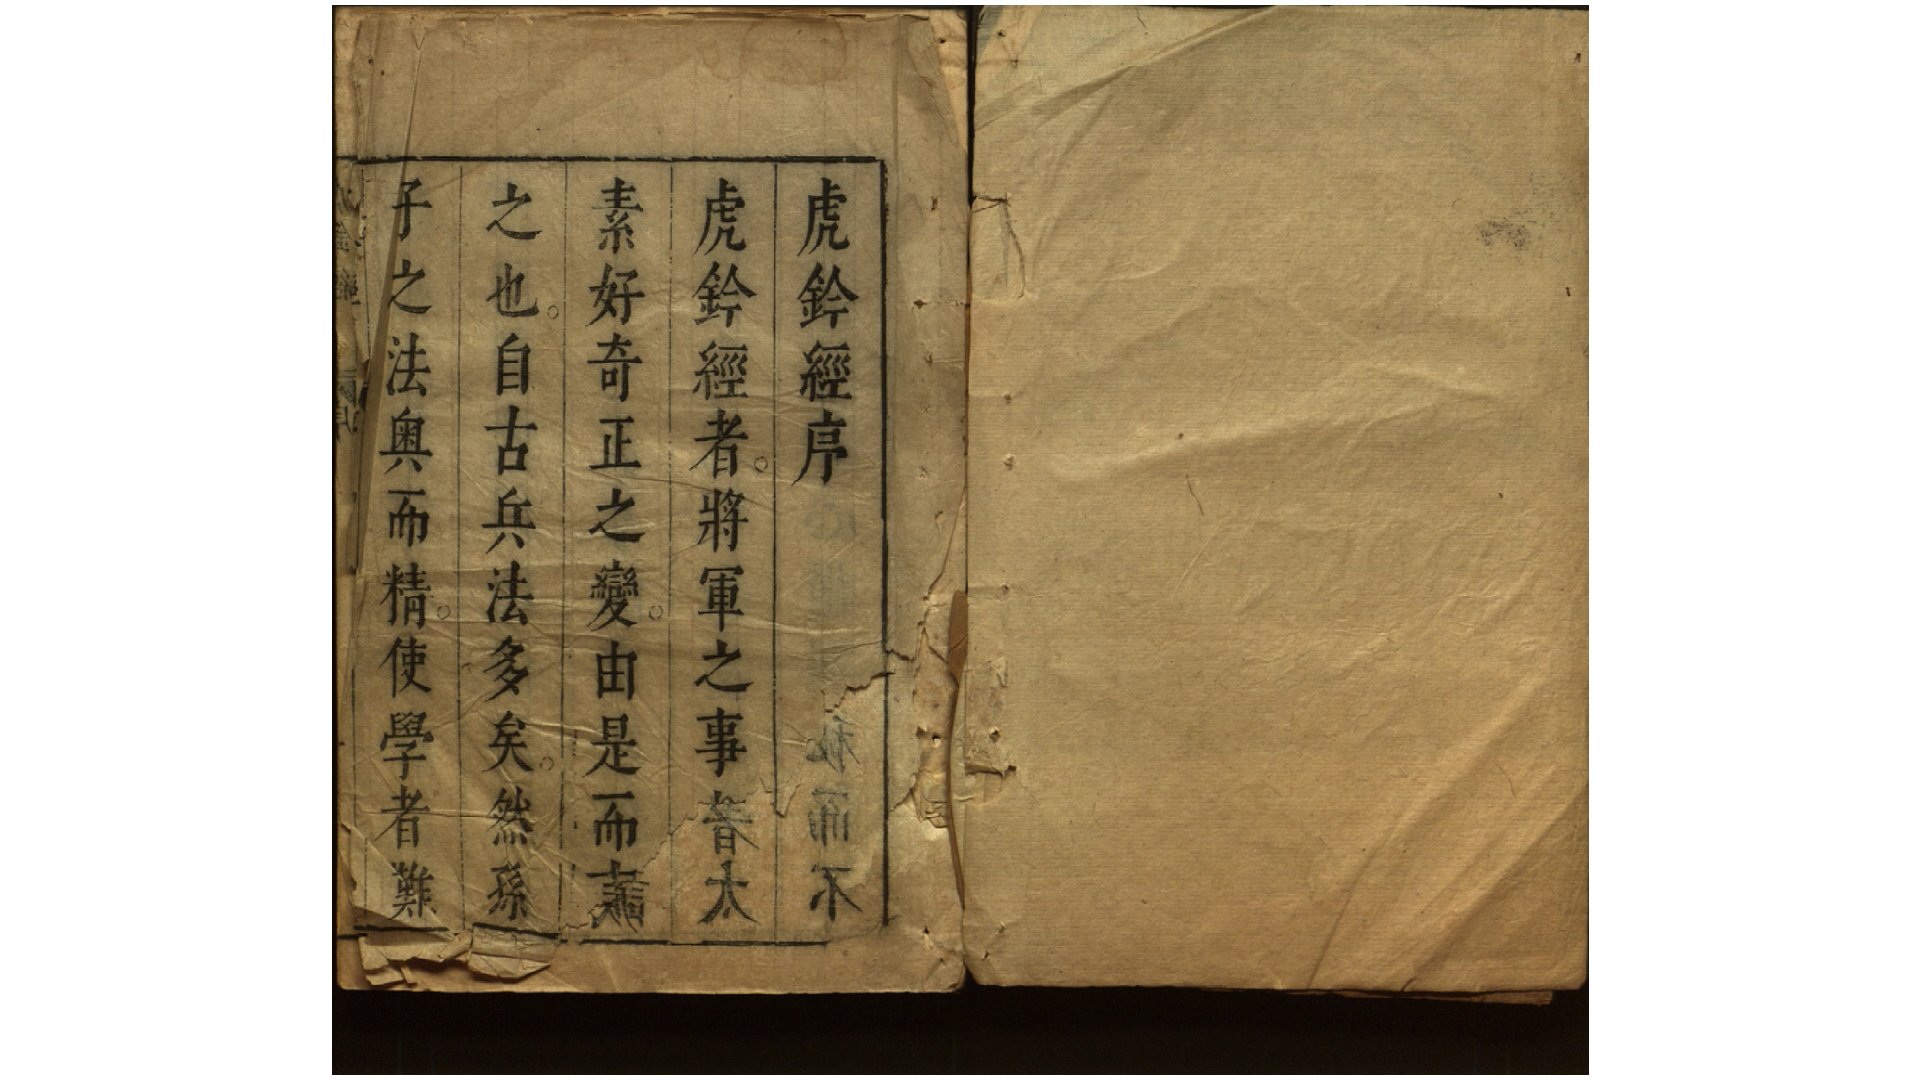 虎鈐經序
虎鈐經者。將軍之事
素好奇正之變。由是而
之也。自古兵法多矣。然孫
子之法奧而精。使學者難